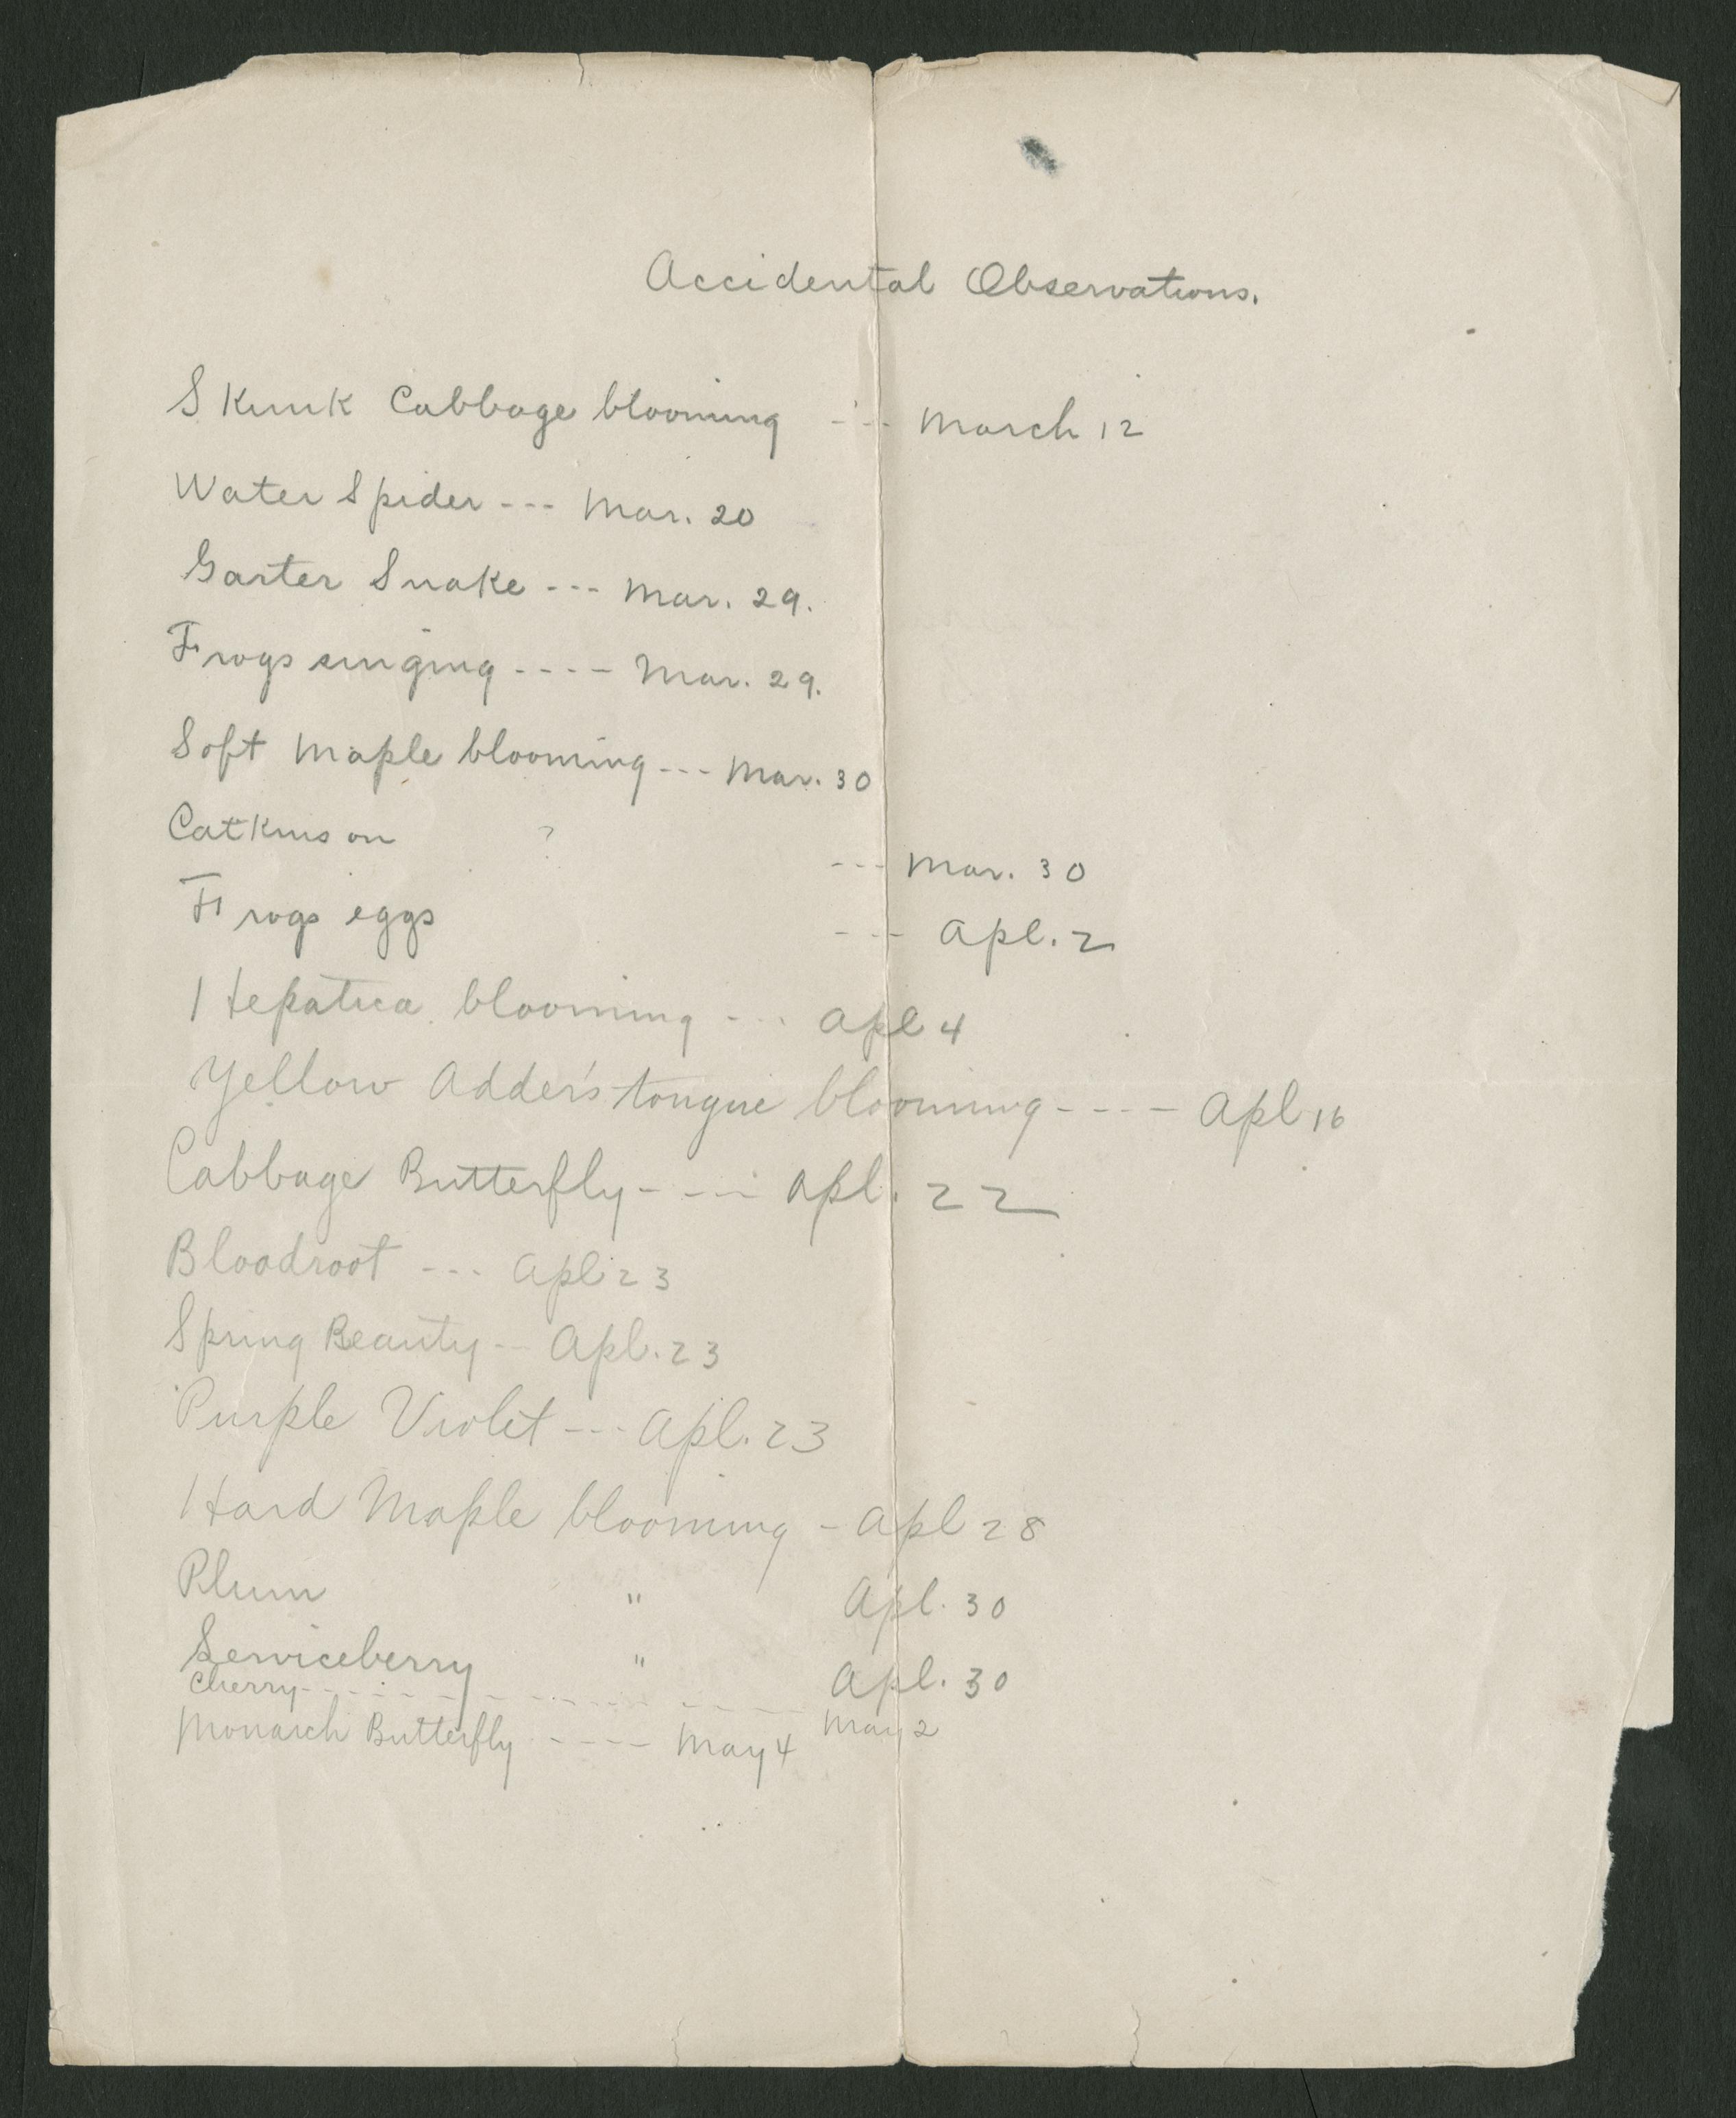 Accidental Observations.
Skunk Cabbage blooming --- March 12
Water Spider --- Mar. 20
Garter Snake --- Mar. 29.
Frogs singing ---- Mar. 29.
Soft Maple blooming --- Mar. 30
Catkins on ? --- Mar. 30
Frogs eggs --- Apl. 2
Hepatica blooming --- Apl 4
Yellow Adder's tongue blooming ---- Apl 16
Cabbage Butterfly ---- Apl. 22
Bloodroot --- Apl 23
Spring Beauty -- Apl. 23
Purple Violet --- Apl. 23
Hard Maple blooming - Apl 28
Plum " Apl. 30
Serviceberry " Apl. 30
Cherry ----------- May 2
Monarch Butterfly ---- May 4